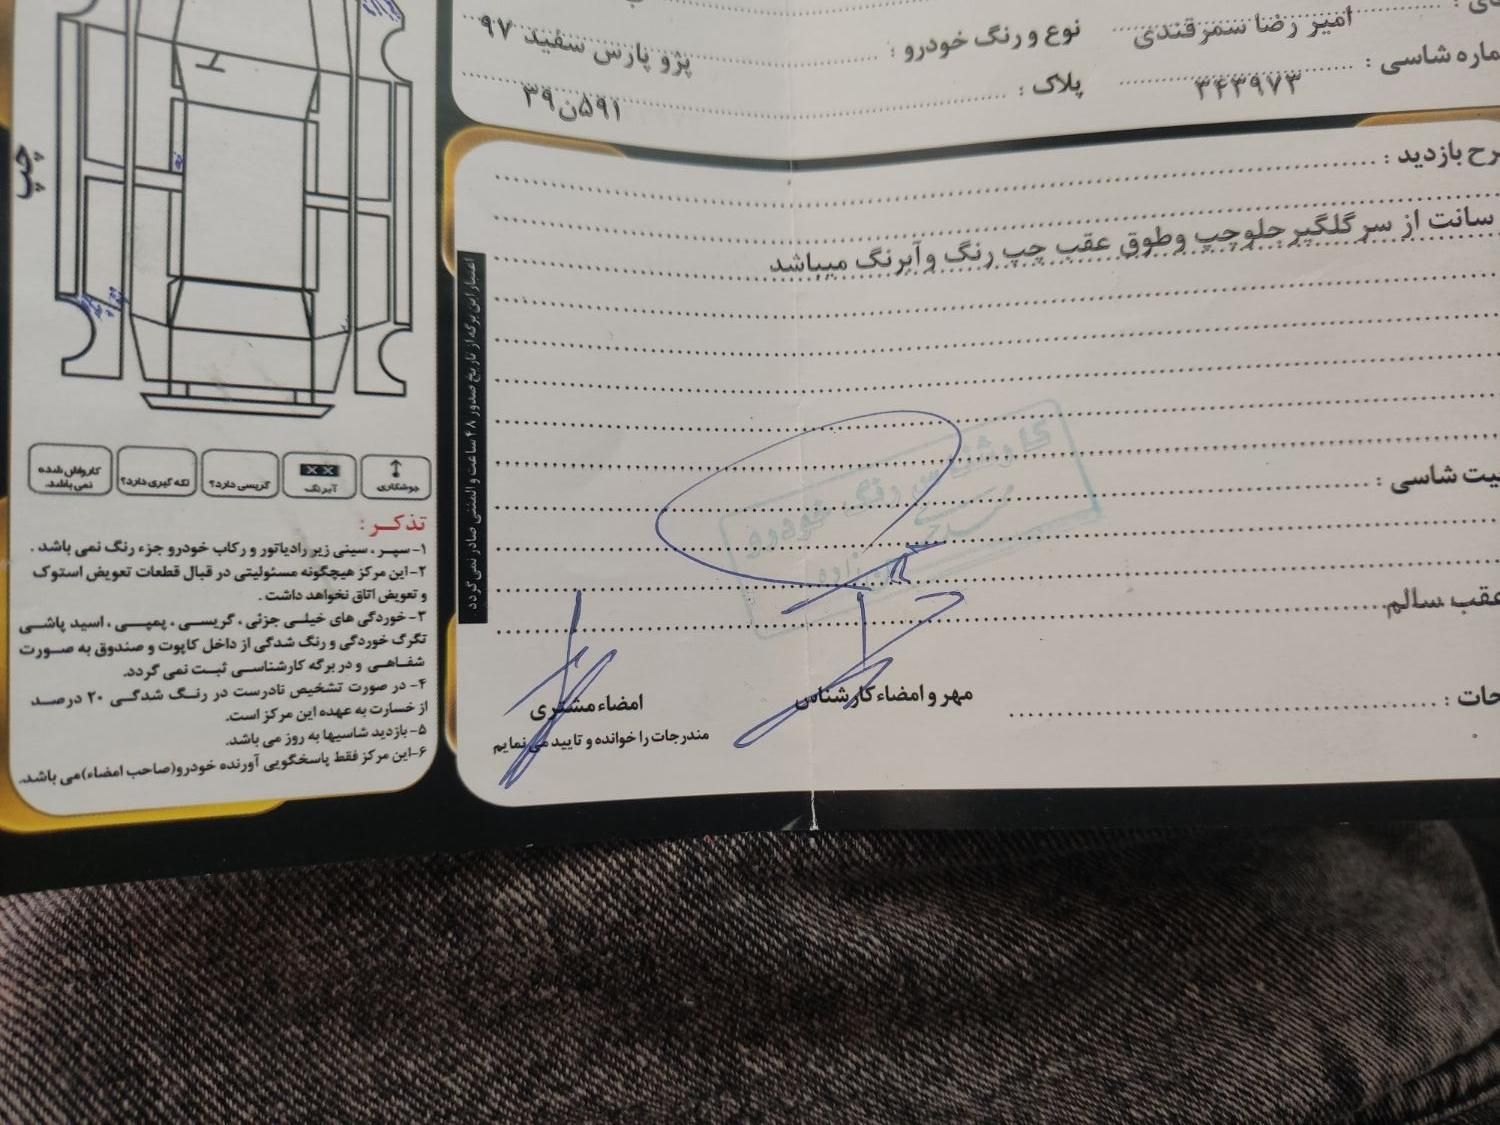 امیر رضا سمرقندی
نوع و رنگ خودرو : پژو پارس سفید ۹۷
ماره شاسی : ۳۴۳۹۷۳
پلاک : ۵۹۱ن۳۹
رح بازدید :
سانت از سر گلگیر جلوچپ وطوق عقب چپ رنگ وآبرنگ میباشد
یت شاسی :
عقب سالم
حات :
کارشناس رنگ خودرو
مهر و امضاء کارشناس
امضاء مشتری
مندرجات را خوانده و تایید می نمایم
اعتبار این برگه از تاریخ صدور ۴۸ ساعت و المثنی صادر نمی گردد
چپ
جوشکاری
آبرنگ
گریسی دارد؟
لکه گیری دارد؟
کارواش شده نمی باشد.
تذکر :
۱- سپر ، سینی زیر رادیاتور و رکاب خودرو جزء رنگ نمی باشد .
۲- این مرکز هیچگونه مسئولیتی در قبال قطعات تعویض استوک
و تعویض اتاق نخواهد داشت .
۳- خوردگی های خیلی جزئی ، گریسی ، پمپی ، اسید پاشی
تگرگ خوردگی و رنگ شدگی از داخل کاپوت و صندوق به صورت
شفاهی و در برگه کارشناسی ثبت نمی گردد.
۴- در صورت تشخیص نادرست در رنگ شدگی ۲۰ درصد
از خسارت به عهده این مرکز است.
۵- بازدید شاسیها به روز می باشد.
۶- این مرکز فقط پاسخگویی آورنده خودرو(صاحب امضاء)می باشد.